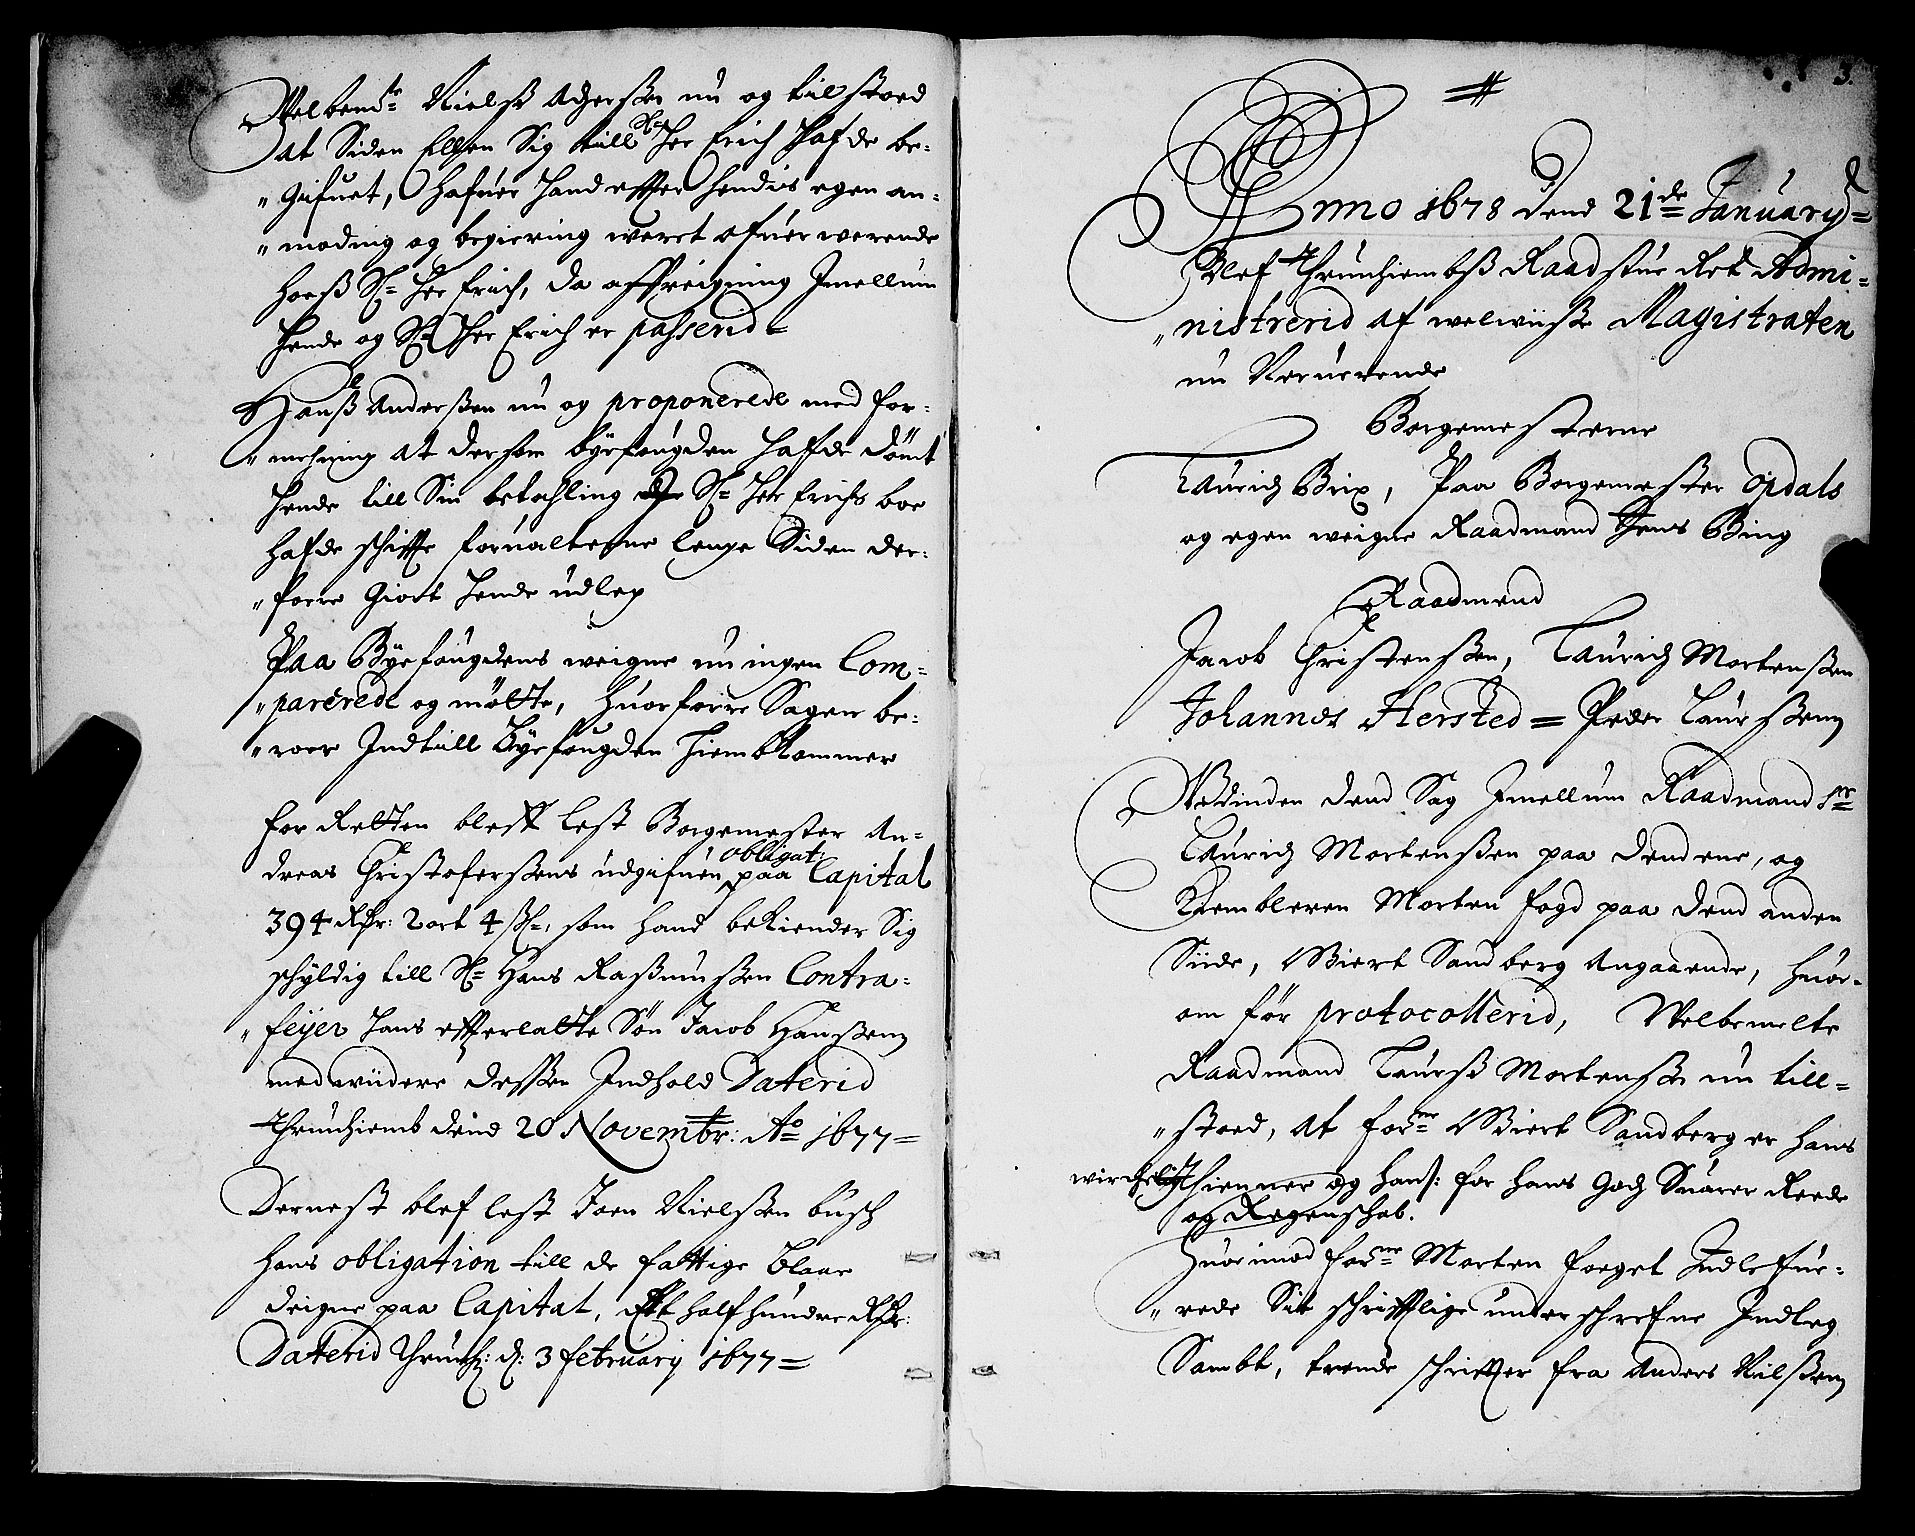 Welbemte Nielß Adzerßen nu og till stoed
at Siden Ellhen Sig till Sl. Her Erich Hafde be=
"gifuet, Hafuer Hand effter hendis egen an=
"moding og begiering weret ofuer werende
hoeß Sl= Her Erich, da affreigning Imellum
Hende og Sl. Her Erich er passerid=
Hanß Anderßen nu og proponerede med for=
"mehning at dersom byefougden Hafde dömt
Hende till Sin betahling Sl= Her Erichs boe
Hafde schiffte forualterne lenge Siden der=
"forre Giort Hende udleg
Paa Byefougdens weigne nu ingen Com=
"parerede og mötte, Huorforre Sagen be=
"roer Indtill Byefougden Hiemb Kommer
For Retten bleff lest Borgemester An=
dreas Christoferßens udgifuen obligat: paa Capital
394 Rdr: 2 ort 4 ß, som Hand beKiender Sig
schyldig till Sl= Hans Raßmußen Contra=
"feyer Hans effterlatte Søn Jacob Hanßen
med widere dessen Indhold Daterid
Thrundhiemb dend 20 Novembr: Ao 1677=
Dernest blef lest Joen Nielßen busch
Hans obligation till de fattige blaae
deigne paa Capital, Et half hundre Rdr:
Daterid Thrundh: d: 3 february 1677=
3.
Anno 1678 dend 21de January=
Blef Thrundhiembß Raadstue Ret Admi=
"nistrerid af welwiiße Magistraten
nu Neruerende
Borgemesterne
Lauridz Brix, Paa Borgemester Opdals
og egen weigne Raadmand Jens Bing
Raadmend
Jacob Christenßen, Lauridz Mortenßen
Johannes Hersted= Peder Laurßen
Wedinden dend Sag Imellum Raadmand Sr
Lauridz Mortenßen paa dend ene, og
Kiembleren Morten Fogd paa dend anden
Siide, Siert Sandberg Angaaende, huor=
om för protocollerid, Welbemelte
Raadmand Laurß Mortenßen nu till=
"stoed, at forne Siert Sandberg er Hans
wirchelig Thienner og Hanß: for Hans Godz Suarer Rede
og Regenschab.
Huorimod forne Morten Foeget Indlefue=
"rede Sit schrifftlige underschrefne Indleg
Sambt, trende schriffter fra Anders Nilßen